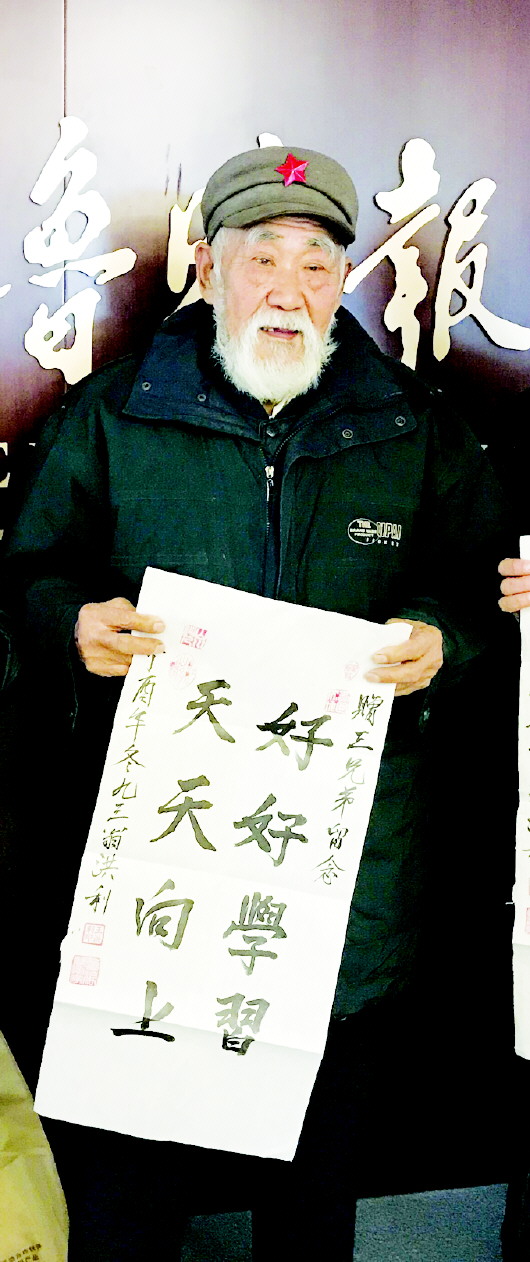 魯晚報
贈三兄弟留念
好好學習
天天向上
酉年冬九三翁洪利
THE